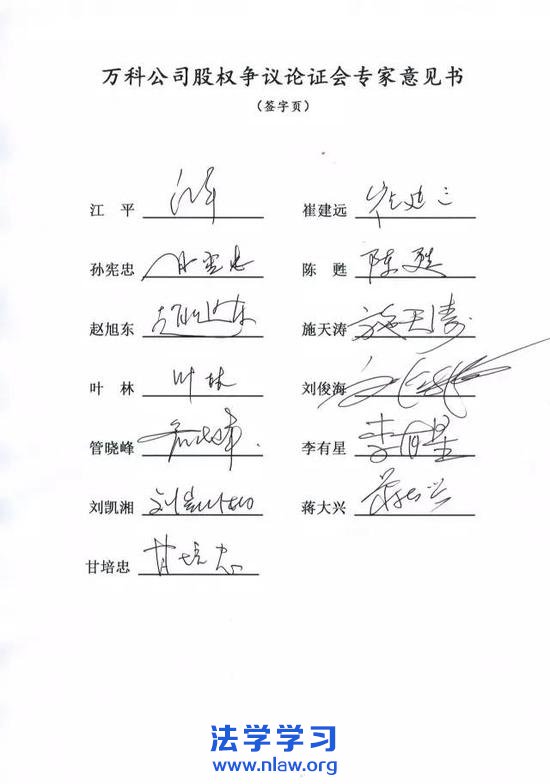 万科公司股权争议论证会专家意见书
（签字页）
江 平 江平 崔建远 崔建远
孙宪忠 孙宪忠 陈 甦 陈甦
赵旭东 赵旭东 施天涛 施天涛
叶 林 叶林 刘俊海
管晓峰 管晓峰 李有星 李有星
刘凯湘 刘凯湘 蒋大兴 蒋大兴
甘培忠 甘培忠
法学学习
www.nlaw.org